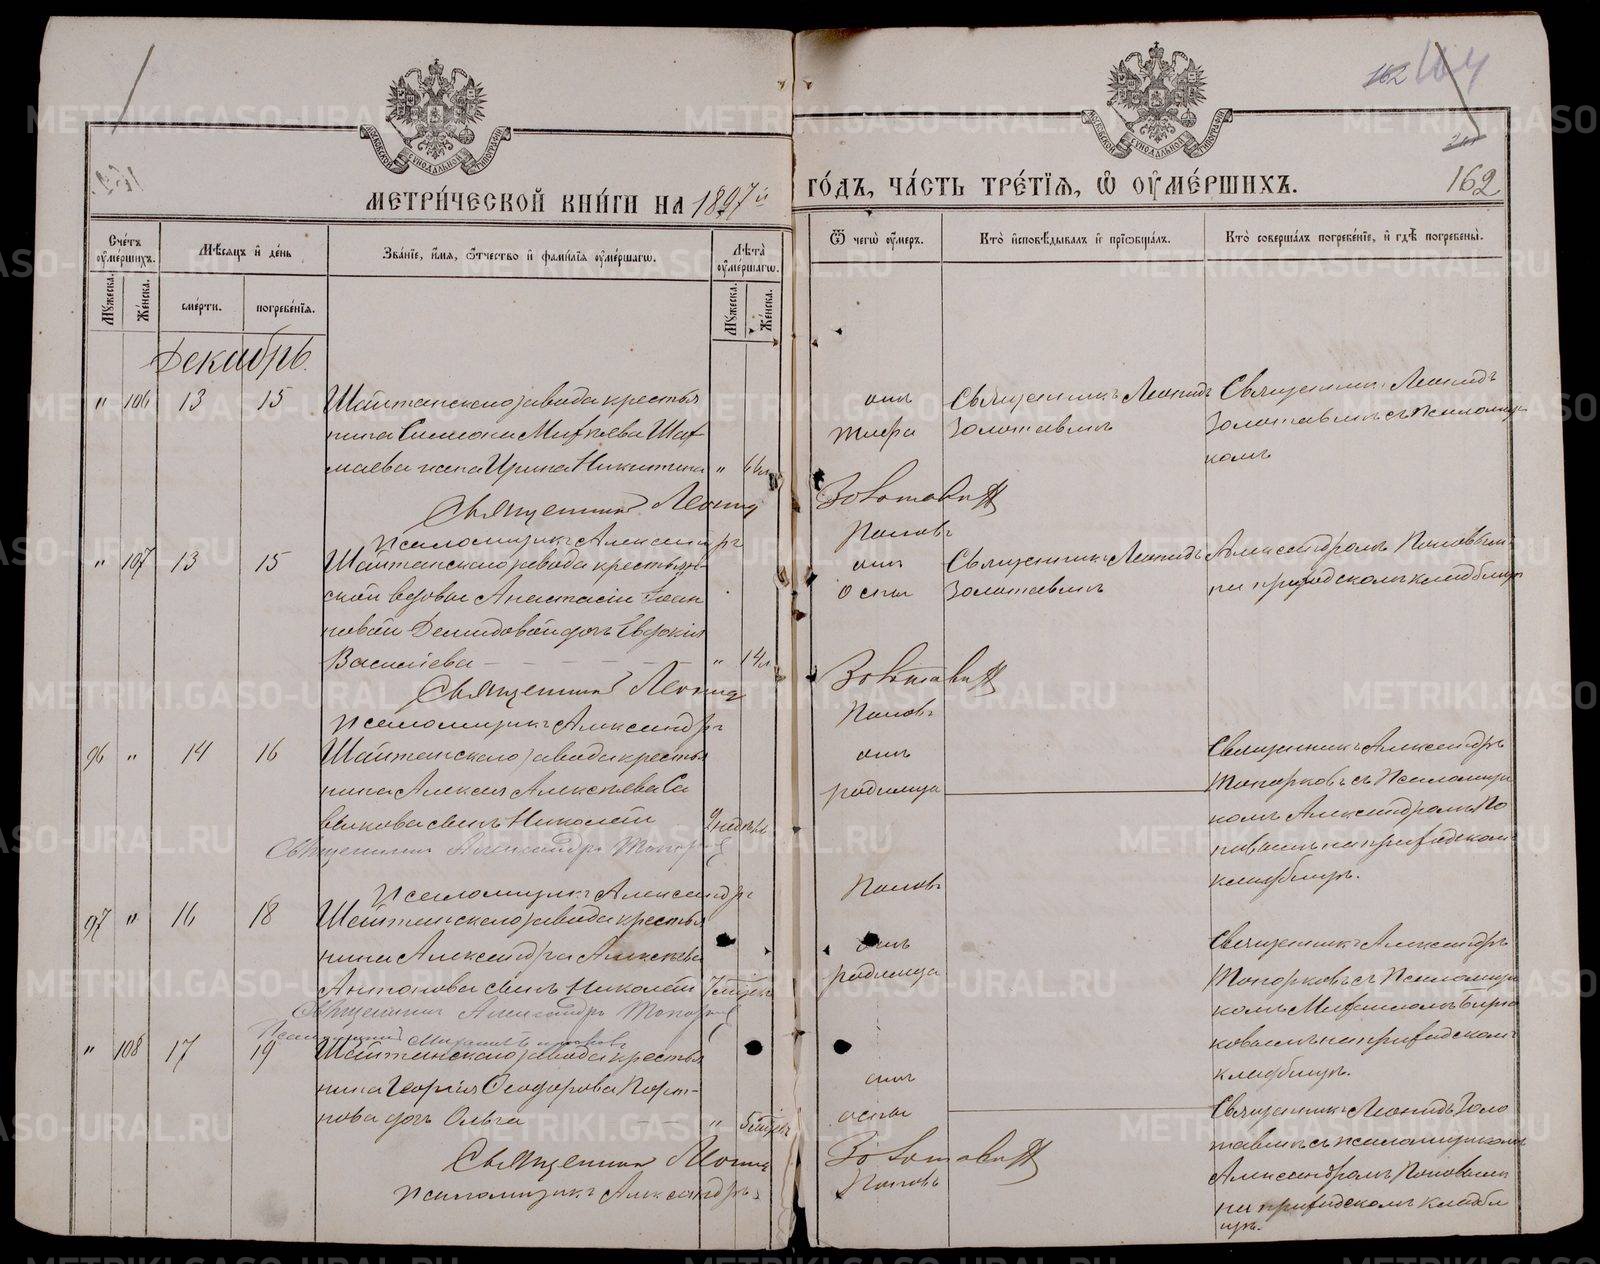 162 164
162
МЕТРИ́ЧЕСКОЙ КНИ́ГИ НА 1897й ГО́ДЪ, ЧА́СТЬ ТРЕ́ТІЯ, Ѽ ОУМЕ́РШИХЪ.
Сче́тъ оумершихъ.
Мꙋжеска.
Же́нска.
Мѣсяцъ и҆ де́нь
сме́рти.
погребе́нїя.
Зва́нїе, и҆́мя, ѻ҆́тчество и҆ фами́лїя оумершагѡ.
Лѣта̀ оумершагѡ.
Мꙋжеска.
Же́нска.
Ѿ чегѡ̀ оу́меръ.
Кто̀ и҆сповѣдывалъ и҆ прїѡбща́лъ.
Кто̀ соверша́лъ погребе́нїе, и҆ гдѣ̀ погребены̀.
Декабрь.
" 106 13 15 Шайтанскаго завода крестья
нина Симеона Матѳѣева
жена Ирина Никитина "
отъ
тифа
Священникъ Леонидъ
Золотавинъ
Священникъ Леонидъ
Золотавинъ съ псаломщи
комъ
Священникъ Леонид Золотавин
Псаломщикъ Александръ Поповъ
" 107 13 15 Шайтанскаго завода крестьян-
ской вдовы Анастасіи Іоан
новой Демидовой дочь Евдокія
Василіева " 14 л
отъ
оспы
Священникъ Леонидъ
Золотавинъ
Александромъ Поповымъ
на приходскомъ кладбищѣ
Священник Леонид Золотавин
Псаломщикъ Александръ Поповъ
96 " 14 16 Шайтанскаго завода крестья
нина Алексія Алексѣева Са
сынъ Николай
отъ
родимца
Священникъ Александръ
Топорковъ съ псаломщи
комъ Александромъ По
повымъ на приходскомъ
кладбищѣ.
Священник Александръ Топорков
Псаломщикъ Александръ Поповъ
97 " 16 18 Шайтанскаго завода крестья
нина Александра Алексѣева
Антонова сынъ Николай
отъ
родимца
Священникъ Александръ
Топорковъ съ псаломщи
комъ Михаиломъ
на приходскомъ
кладбищѣ.
Священник Александръ Топорков
Псаломщикъ Михаилъ
" 108 17 19 Шайтанскаго завода крестья
нина Георгія Ѳеодорова
дочь Ольга "
отъ
оспы
Священникъ Леонидъ Золо
тавинъ съ псаломщикомъ
Александромъ Поповымъ
на приходскомъ кладби
щѣ.
Священник Леонид Золотавин
Псаломщикъ Александръ Поповъ
METRIKI.GASO-URAL.RU